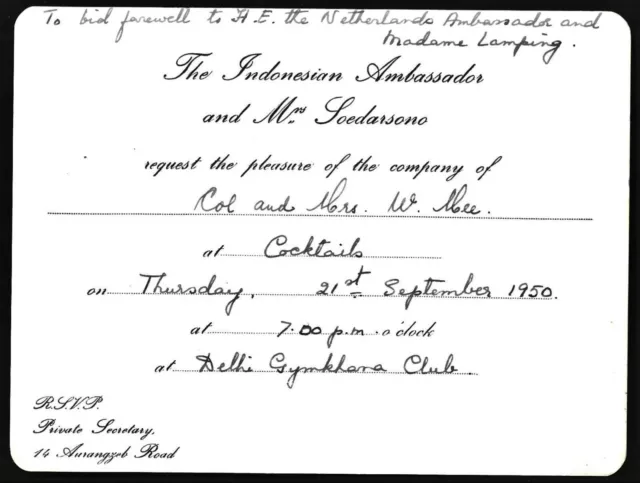 To bid farewell to H.E. the Netherlands Ambassador and
Madame Lamping.
The Indonesian Ambassador
and Mrs Soedarsono
request the pleasure of the company of
Col and Mrs. W. Mee.
at Cocktails
on Thursday, 21st September 1950.
at 7.00 p.m. o'clock
at Delhi Gymkhana Club.
R.S.V.P.
Private Secretary,
14 Aurangzeb Road